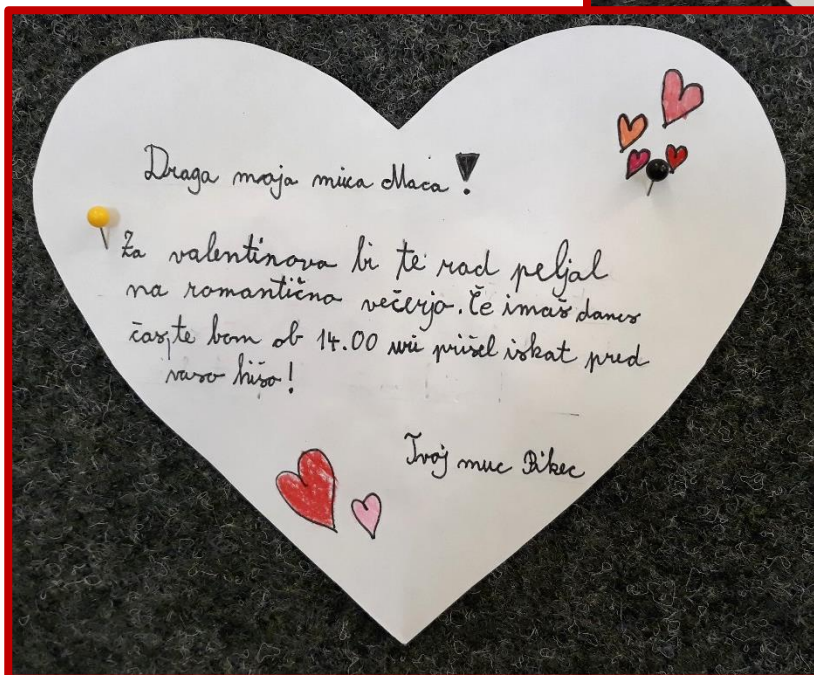 Draga moja muca Maca!
Za valentinovo bi te rad peljal
na romantično večerjo. Če imaš danes
čas, te bom ob 14.00 uri prišel iskat pred
vašo hišo!
Tvoj muc Pikec